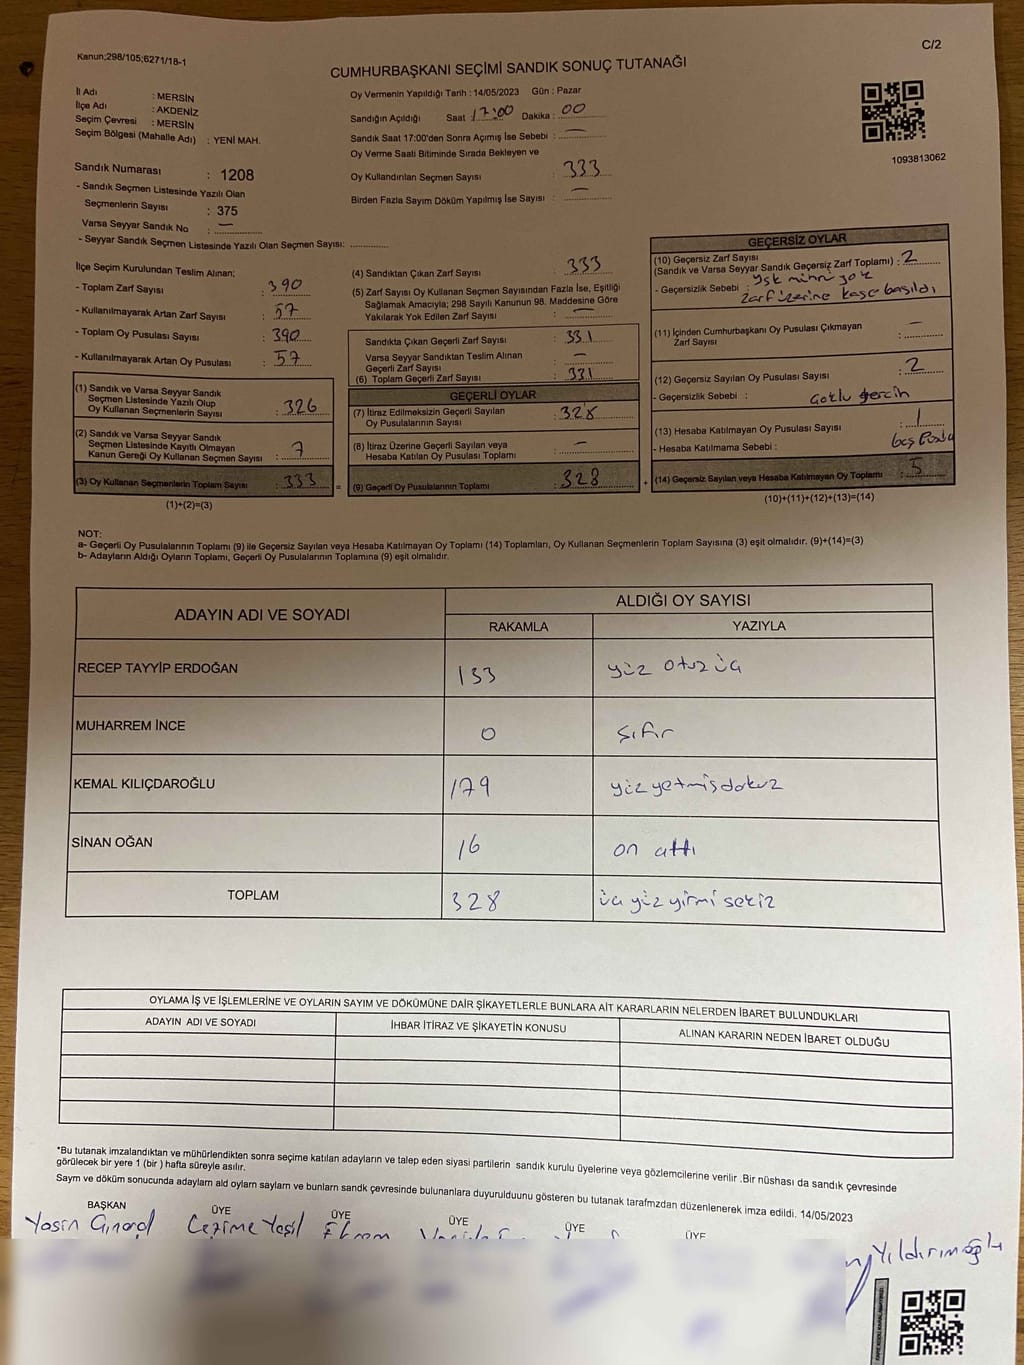 Kanun;298/105;6271/18-1
C/2
CUMHURBAŞKANI SEÇİMİ SANDIK SONUÇ TUTANAĞI
İl Adı : MERSİN
İlçe Adı : AKDENİZ
Seçim Çevresi : MERSİN
Seçim Bölgesi (Mahalle Adı) : YENİ MAH.
Sandık Numarası : 1208
- Sandık Seçmen Listesinde Yazılı Olan
Seçmenlerin Sayısı : 375
Varsa Seyyar Sandık No : —
- Seyyar Sandık Seçmen Listesinde Yazılı Olan Seçmen Sayısı: ............
Oy Vermenin Yapıldığı Tarih : 14/05/2023 Gün : Pazar
Sandığın Açıldığı Saat 17:00 Dakika : 00
Sandık Saat 17:00'den Sonra Açımış İse Sebebi : —
Oy Verme Saati Bitiminde Sırada Bekleyen ve
Oy Kullandırılan Seçmen Sayısı : 333
Birden Fazla Sayım Döküm Yapılmış İse Sayısı : —
1093813062
İlçe Seçim Kurulundan Teslim Alınan;
- Toplam Zarf Sayısı : 390
- Kullanılmayarak Artan Zarf Sayısı : 57
- Toplam Oy Pusulası Sayısı : 390
- Kullanılmayarak Artan Oy Pusulası : 57
(1) Sandık ve Varsa Seyyar Sandık
Seçmen Listesinde Yazılı Olup
Oy Kullanan Seçmenlerin Sayısı : 326
(2) Sandık ve Varsa Seyyar Sandık
Seçmen Listesinde Kayıtlı Olmayan
Kanun Gereği Oy Kullanan Seçmen Sayısı : 7
(3) Oy Kullanan Seçmenlerin Toplam Sayısı : 333
(1)+(2)=(3)
(4) Sandıktan Çıkan Zarf Sayısı : 333
(5) Zarf Sayısı Oy Kullanan Seçmen Sayısından Fazla İse, Eşitliği
Sağlamak Amacıyla; 298 Sayılı Kanunun 98. Maddesine Göre
Yakılarak Yok Edilen Zarf Sayısı : —
Sandıkta Çıkan Geçerli Zarf Sayısı : 331
Varsa Seyyar Sandıktan Teslim Alınan
Geçerli Zarf Sayısı : —
(6) Toplam Geçerli Zarf Sayısı : 331
GEÇERLİ OYLAR
(7) İtiraz Edilmeksizin Geçerli Sayılan
Oy Pusulalarının Sayısı : 328
(8) İtiraz Üzerine Geçerli Sayılan veya
Hesaba Katılan Oy Pusulası Toplamı : —
(9) Geçerli Oy Pusulalarının Toplamı : 328
GEÇERSİZ OYLAR
(10) Geçersiz Zarf Sayısı
(Sandık ve Varsa Seyyar Sandık Geçersiz Zarf Toplamı) : 2
- Geçersizlik Sebebi : ysk mührü yok
zarf üzerine kaşe basıldı
(11) İçinden Cumhurbaşkanı Oy Pusulası Çıkmayan
Zarf Sayısı : —
(12) Geçersiz Sayılan Oy Pusulası Sayısı : 2
- Geçersizlik Sebebi : Çoklu tercih
(13) Hesaba Katılmayan Oy Pusulası Sayısı : 1
- Hesaba Katılmama Sebebi : boş pusula
(14) Geçersiz Sayılan veya Hesaba Katılmayan Oy Toplamı : 5
(10)+(11)+(12)+(13)=(14)
NOT:
a- Geçerli Oy Pusulalarının Toplamı (9) ile Geçersiz Sayılan veya Hesaba Katılmayan Oy Toplamı (14) Toplamları, Oy Kullanan Seçmenlerin Toplam Sayısına (3) eşit olmalıdır. (9)+(14)=(3)
b- Adayların Aldığı Oyların Toplamı, Geçerli Oy Pusulalarının Toplamına (9) eşit olmalıdır.
ADAYIN ADI VE SOYADI
ALDIĞI OY SAYISI
RAKAMLA YAZIYLA
RECEP TAYYİP ERDOĞAN 133 yüz otuz üç
MUHARREM İNCE 0 sıfır
KEMAL KILIÇDAROĞLU 179 yüz yetmiş dokuz
SİNAN OĞAN 16 on altı
TOPLAM 328 üç yüz yirmi sekiz
OYLAMA İŞ VE İŞLEMLERİNE VE OYLARIN SAYIM VE DÖKÜMÜNE DAİR ŞİKAYETLERLE BUNLARA AİT KARARLARIN NELERDEN İBARET BULUNDUKLARI
ADAYIN ADI VE SOYADI İHBAR İTİRAZ VE ŞİKAYETİN KONUSU ALINAN KARARIN NEDEN İBARET OLDUĞU
*Bu tutanak imzalandıktan ve mühürlendikten sonra seçime katılan adayların ve talep eden siyasi partilerin sandık kurulu üyelerine veya gözlemcilerine verilir .Bir nüshası da sandık çevresinde
görülecek bir yere 1 (bir ) hafta süreyle asılır.
Sayım ve döküm sonucunda adayların ald oyların sayılarn ve bunlarn sandk çevresinde bulunanlara duyurulduunu gösteren bu tutanak tarafmzdan düzenlenerek imza edildi. 14/05/2023
BAŞKAN ÜYE ÜYE ÜYE ÜYE ÜYE
Yasin Cezime Yeşil Ekrem
Yıldırımoğlu